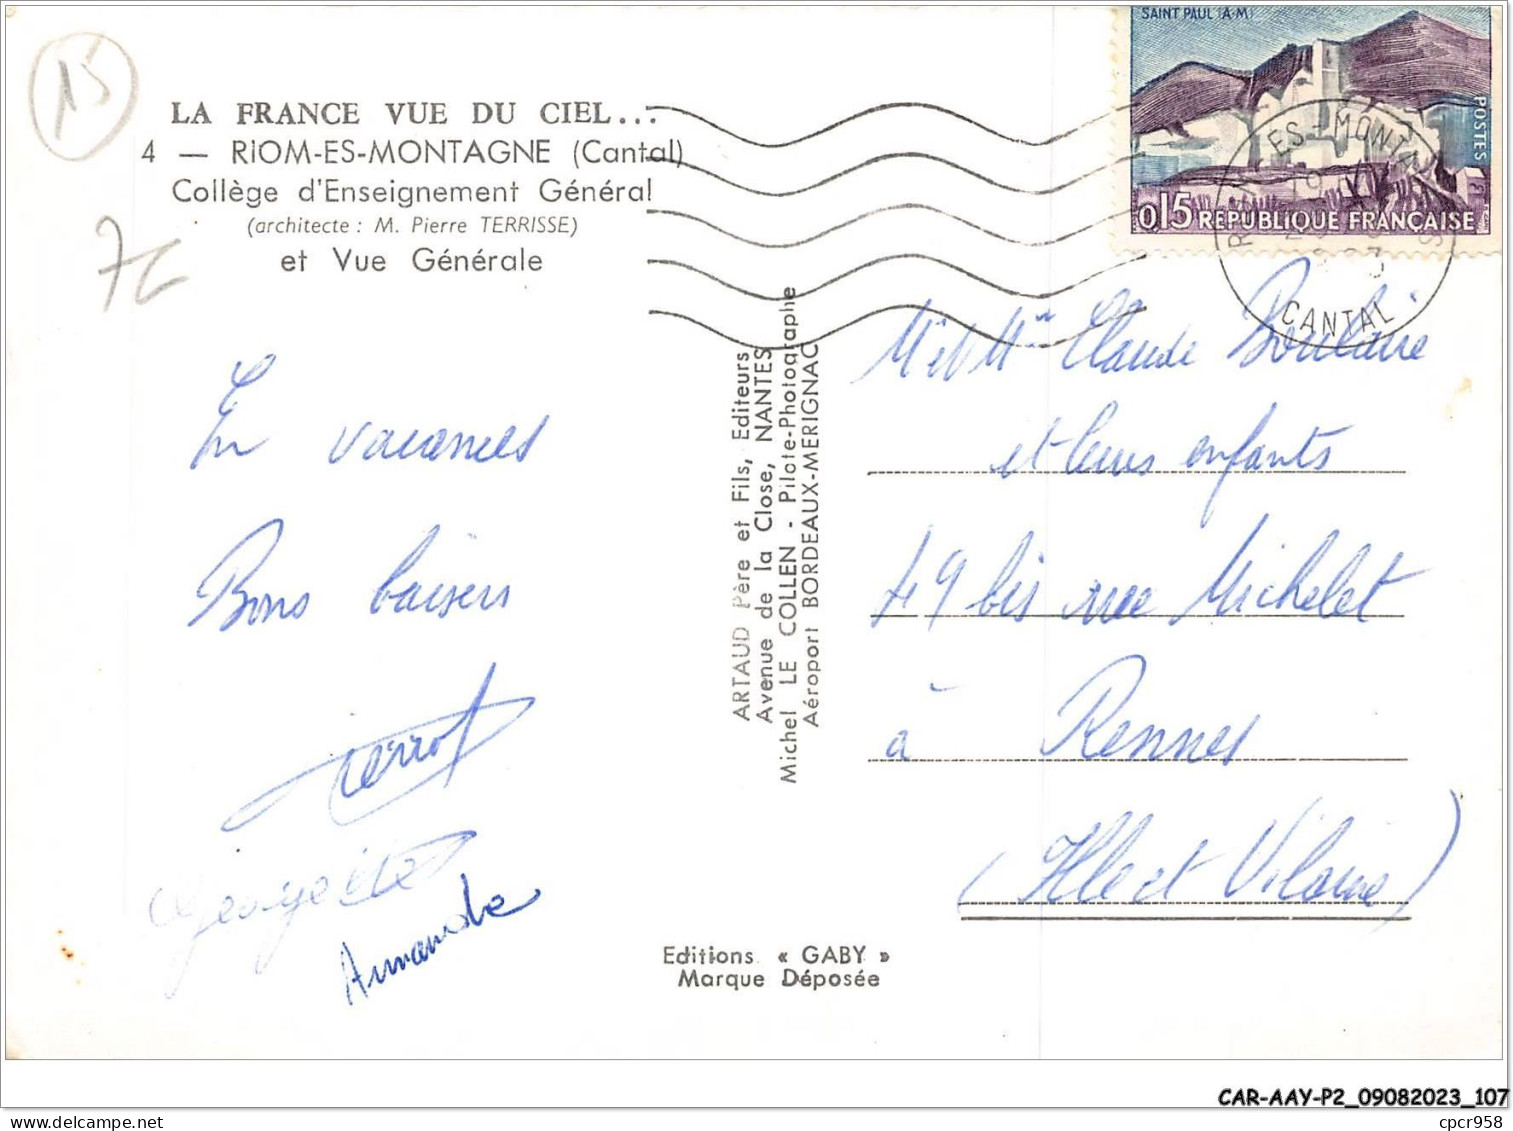 15
LA FRANCE VUE DU CIEL...
4 — RIOM-ES-MONTAGNE (Cantal)
Collège d'Enseignement Général
(architecte : M. Pierre TERRISSE)
et Vue Générale
En vacances
Bons baisers
Pierrot
Georgette
Armande
ARTAUD Père et Fils, Editeurs
Avenue de la Close, NANTES
Michel LE COLLEN - Pilote-Photographe
Aéroport BORDEAUX-MERIGNAC
Editions « GABY »
Marque Déposée
SAINT PAUL (A-M)
POSTES
0,15 RÉPUBLIQUE FRANÇAISE
ES-MONTA
CANTAL
Mr et Mme Claude Boulaire
et leurs enfants
49 bis rue Michelet
à Rennes
(Ille et Vilaine)
CAR-AAY-P2_09082023_107
delcampe.net
cpcr958